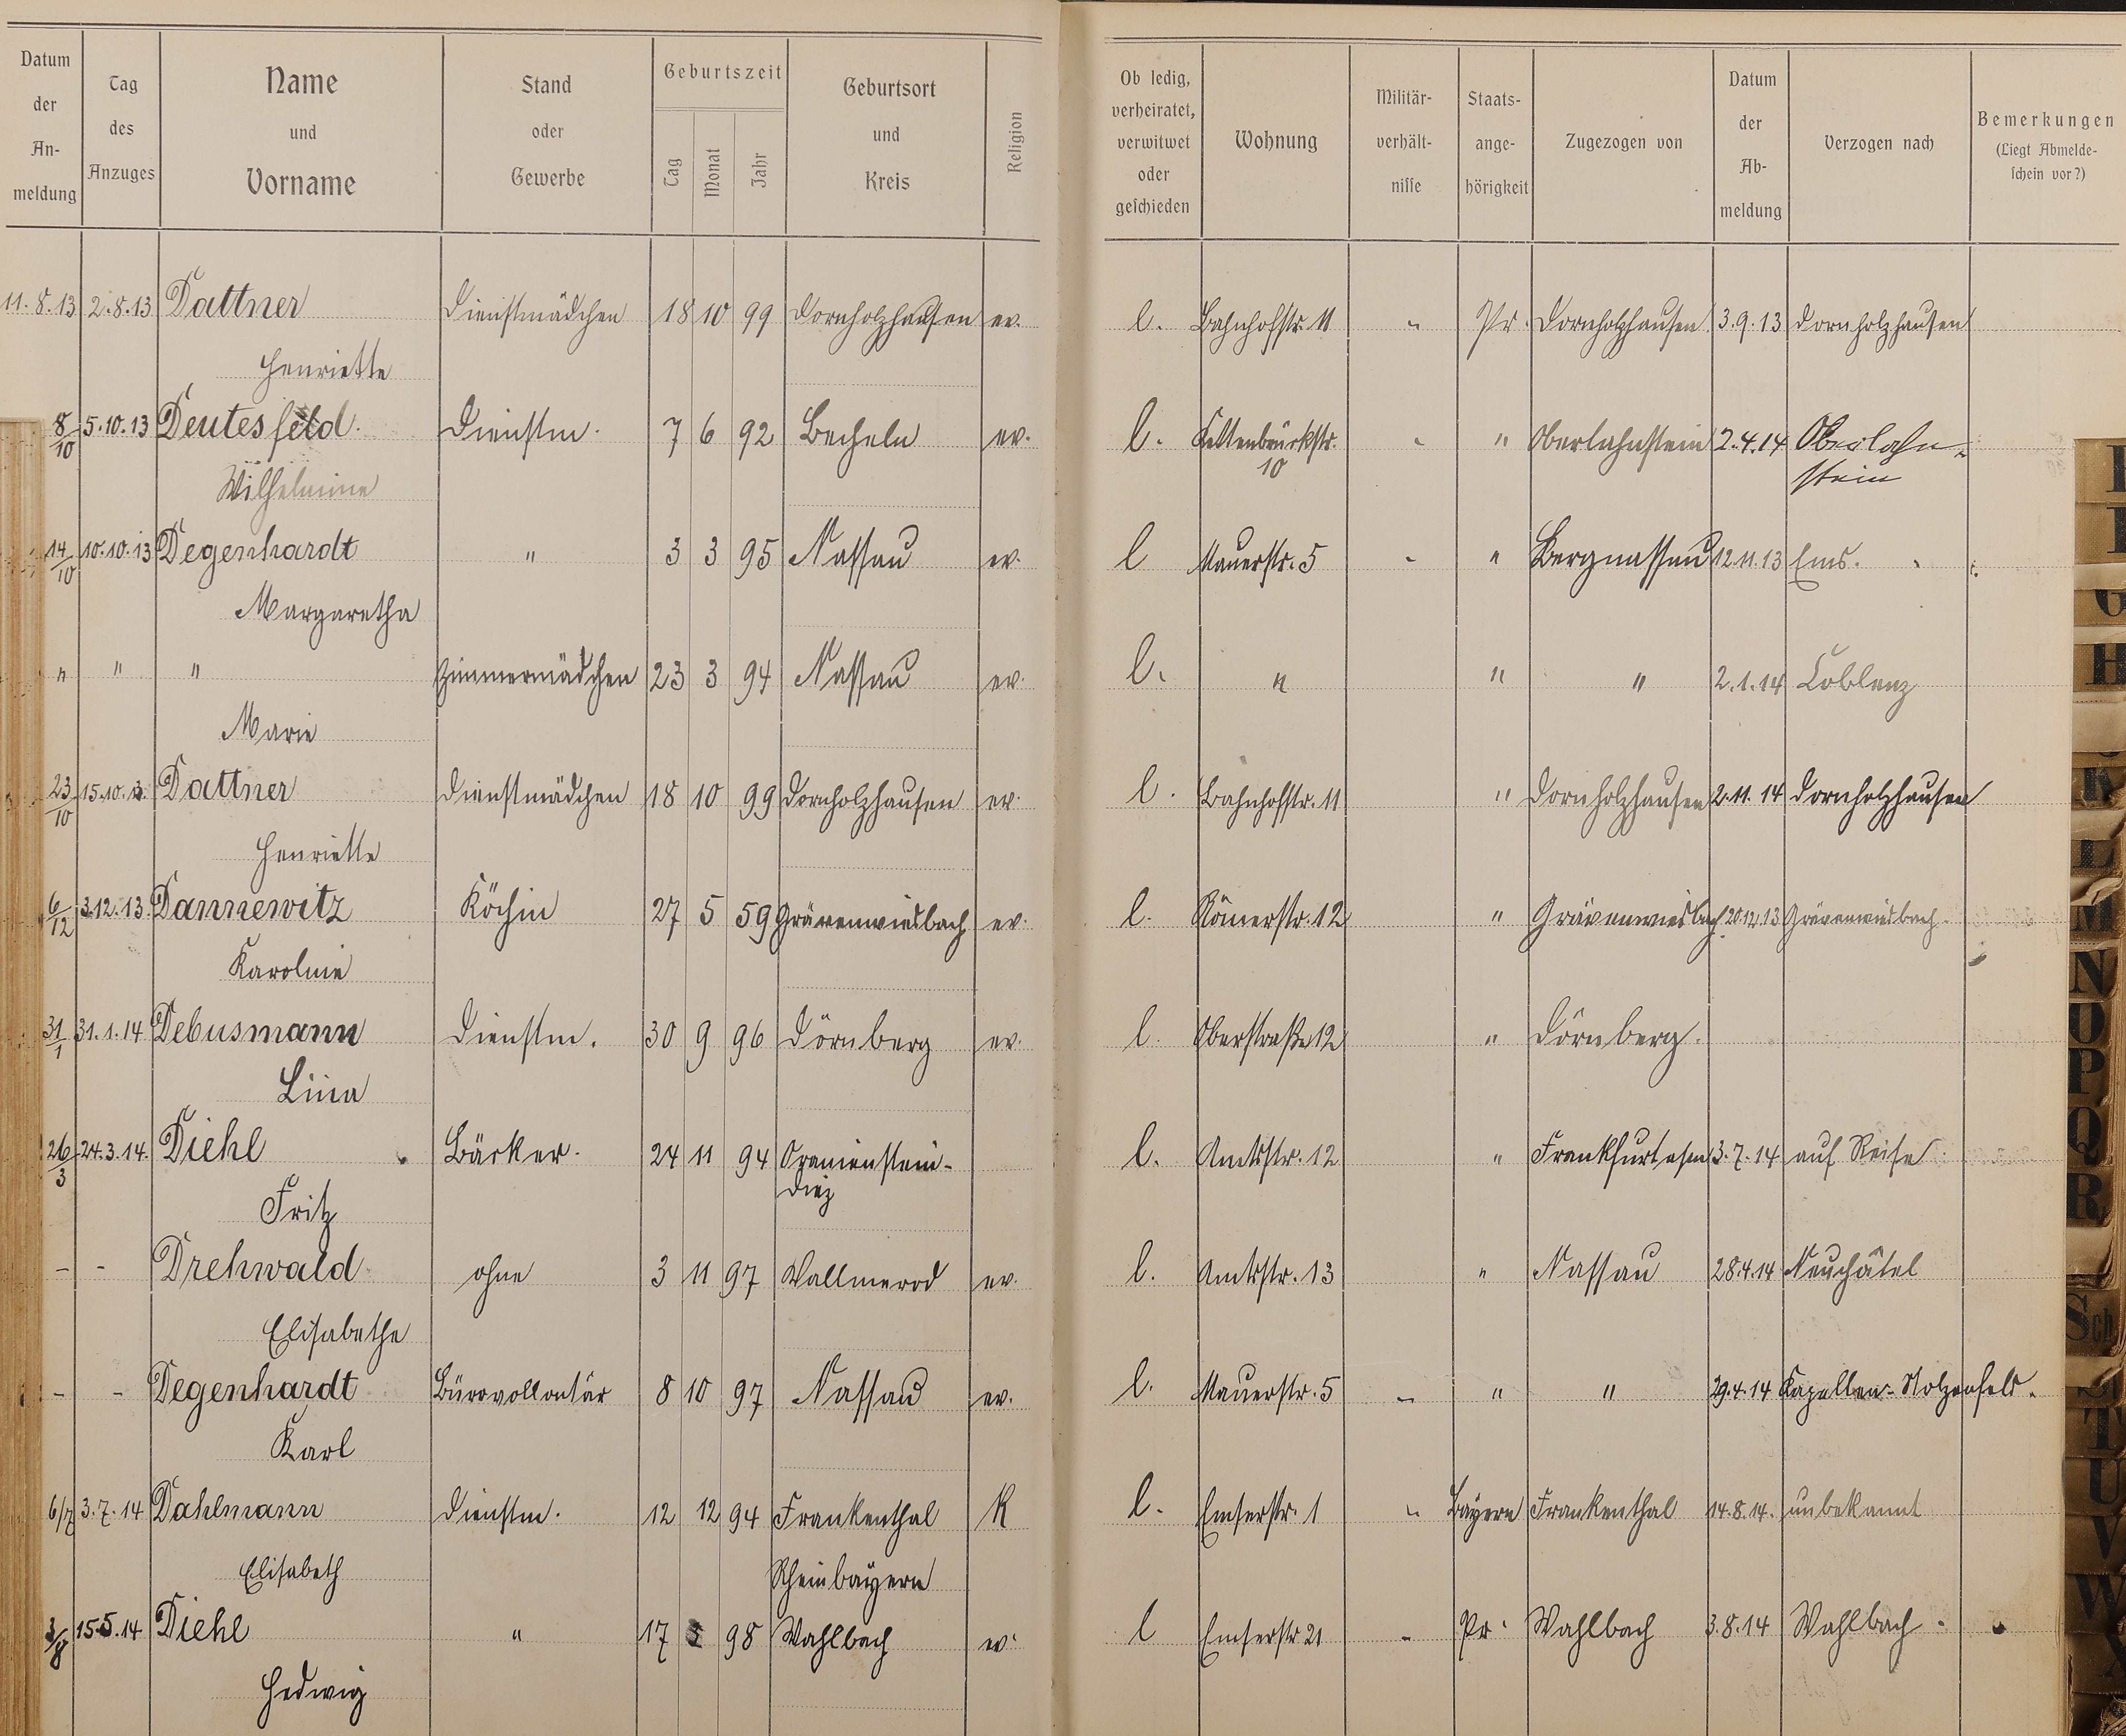 Datum der An- meldung | Tag des Anzuges | Name und Vorname | Stand oder Gewerbe | Geburtszeit Tag Monat Jahr | Geburtsort und Kreis | Religion | Ob ledig, verheiratet, verwitwet oder geschieden | Wohnung | Militär- verhält- nisse | Staats- ange- hörigkeit | Zugezogen von | Datum der Ab- meldung | Verzogen nach | Bemerkungen (Liegt Abmelde- schein vor?)
11.8.13 2.8.13 Dattner Dienstmädchen 18 10 99 Dornholzhausen ev. l. Bahnhofstr. 11 " Pr. Dornholzhausen 3.9.13 Dornholzhausen
Henriette
8/10 5.10.13 Deutesfeld. Dienstm. 7 6 92 Becheln ev. l. Kettenbrückstr. - " Oberlahnstein 2.4.14 Oberlahn-
Wilhelmine 10 stein
14/10 10.10.13 Degenhardt " 3 3 95 Nassau ev. l Mauerstr. 5 - " Bergnassau 12.11.13 Ems.
Margaretha
" " " Zimmermädchen 23 3 94 Nassau ev. l. " " " 2.1.14 Coblenz
Marie
23/10 15.10.13. Dattner Dienstmädchen 18 10 99 Dornholzhausen ev. l. Bahnhofstr. 11 " Dornholzhausen 2.11.14 Dornholzhausen
Henriette
6/12 3.12.13 Dannewitz Köchin 27 5 59 Grävenwiesbach ev. l. Römerstr. 12 " Grävenwiesbach 20.12.13 Grävenwiesbach.
Karoline
31/1 31.1.14 Debusmann Dienstm. 30 9 96 Dörnberg ev. l. Oberstraße 12 " Dörnberg.
Lina
26/3 24.3.14. Diehl Bäcker. 24 11 94 Oranienstein- l. Amtsstr. 12 " Frankfurt a/m 3.7.14 auf Reise
Fritz Diez
- - Drehwald ohne 3 11 97 Wallmerod ev. l. Amtsstr. 13 " Nassau 28.4.14 Neuchâtel
Elisabethe
- - Degenhardt Bürovollontär 8 10 97 Nassau ev. l. Mauerstr. 5 - " " 29.4.14 Kapellen-Stolzenfels.
Karl
6/7 3.7.14 Dahlmann Dienstm. 12 12 94 Frankenthal K l. Emserstr. 1 " Bayern Frankenthal 14.8.14. unbekannt
Elisabeth Rheinbayern
3/8 15.5.14 Diehl " 17 5 98 Wahlbach ev. l Emserstr 21 - Pr. Wahlbach 3.8.14 Wahlbach
Hedwig
G
H
K
L
M
N
O
P
Q
R
Sch
T
U
V
W
X